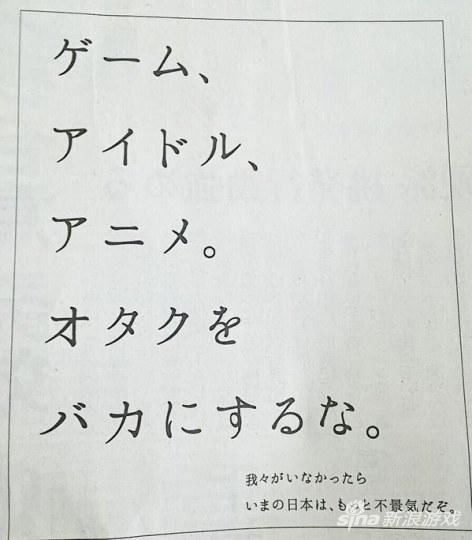 ゲーム、
アイドル、
アニメ。
オタクを
バカにするな。
我々がいなかったら
いまの日本は、もっと不景気だぞ。
sina新浪游戏